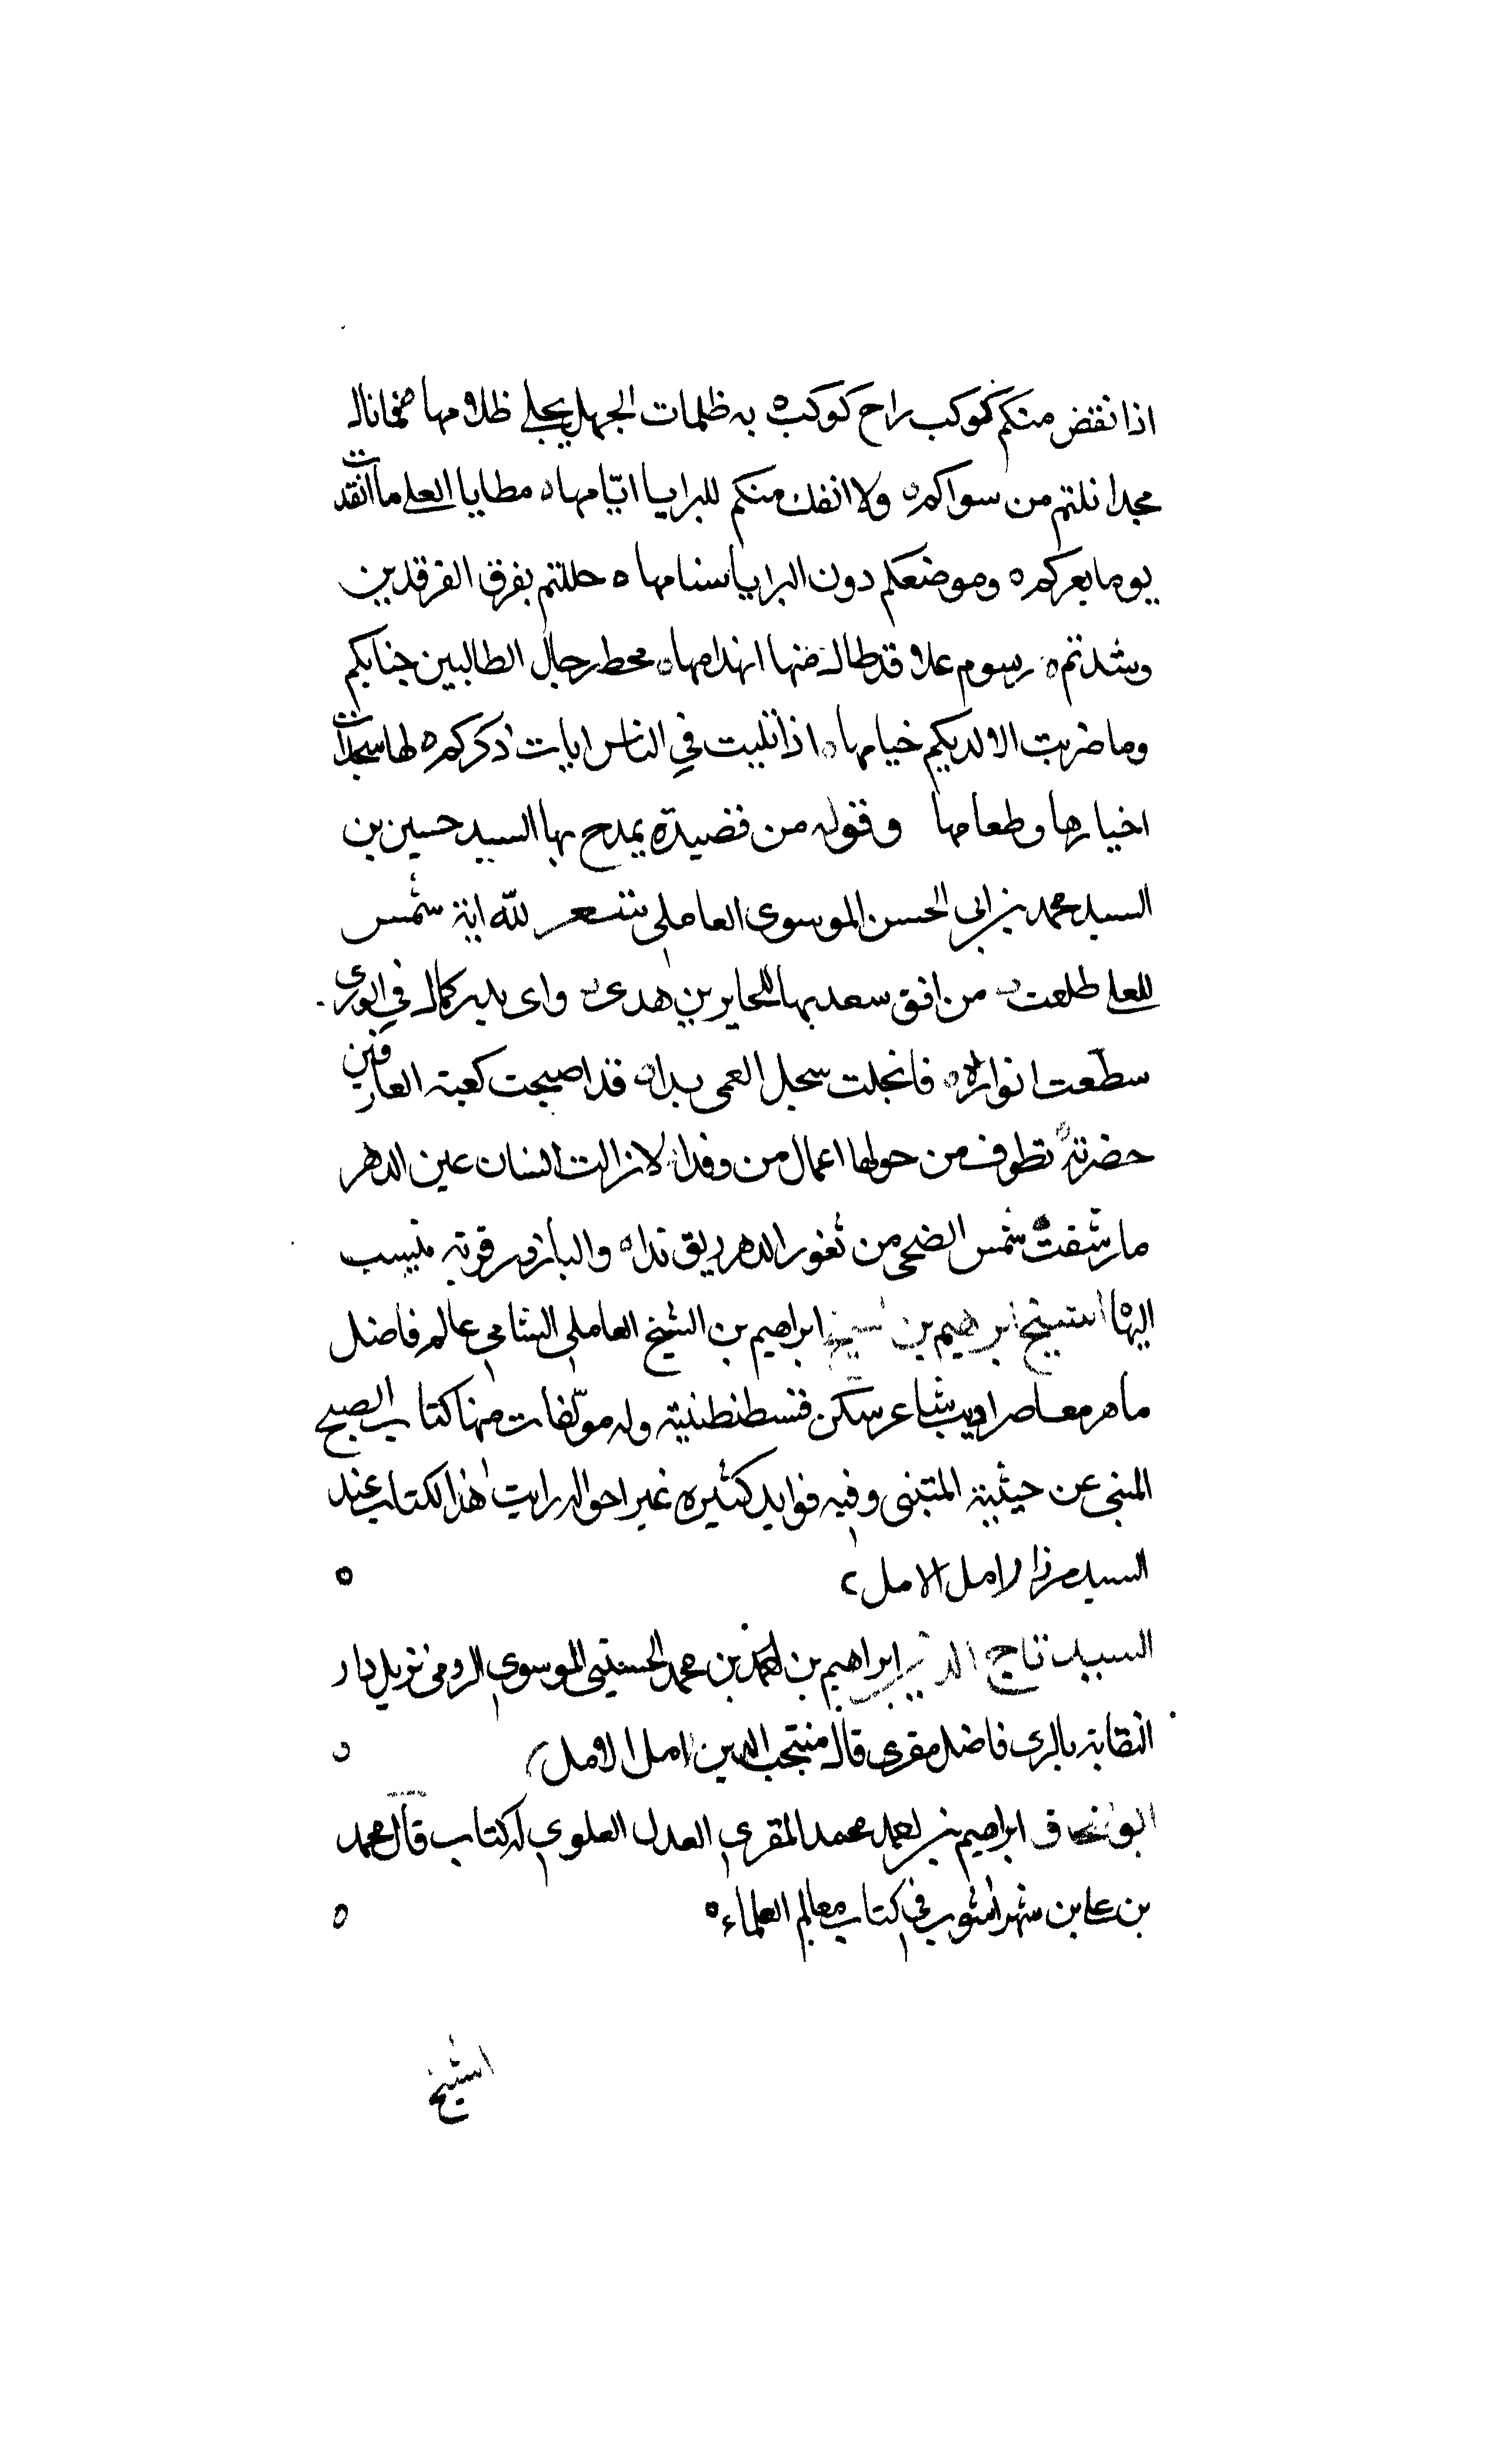 اذا نقض منكم كوكب راح كوكب ه به ظلمات الجهل يجلى ظلامها فما نال
مجدا نلتم من سواكم ه ولا انفك منكم للبرايا ايّامها ه مطايا العلى ما انقدت
يوما بعركم ه وموضعكم دون البرايا سنامها ه حللتم بفرق الفرقدين
وشدتم ه رسوم علا قد طال منها انهدامها ه محط رحال الطالبين جنابكم
وما ضربت الا لديكم خيامها ه اذا تليت في الناس ايات ذكركم ه لها سجدت
اخيارها وطعامها وقوله من قصيدة يمدح بها السيد حسين بن
السيد محمد بن ابى الحسن الموسوى العاملى شعر لله اية شمس
للعلى طلعت من افق سعد بها للحايرين هدى واى بدر كمال في الورى
سطعت انواره ه فانجلت سجل العمى بداه قد اصبحت كعبة العارفين
حضرته تطوف من حولها اعمال من وفدا لا زالت انسان عين الدهر
ما رشفت شمس الضحى من ثغور الدهر ريق نداه والبازور قرية ينسب
اليها الشيخ ابرهيم بن شيخ ابراهيم بن الشيخ العاملى الشامى عالم فاضل
ماهر معاصر اديب شاعر سكن قسطنطنية وله مولّفات منها كتاب الصبح
المنبى عن حيثية المتنبى وفيه فوايد كثيره غير احواله رايت هذا الكتاب عند
السيد مرزا لامل الامل
السيد تاج الدين ابراهيم بن احمد بن محمد الحسينى الموسوى الرومى نزيل دار
النقابة بالرى فاضل مقرى قال منتجب الدين امل الامل
ابو اسحاق ابراهيم بن احمد محمد المقرى العدل العلوى له كتاب قال محمد
بن على بن شهر اشوب في كتاب معالم العلماء ه
الشيخ